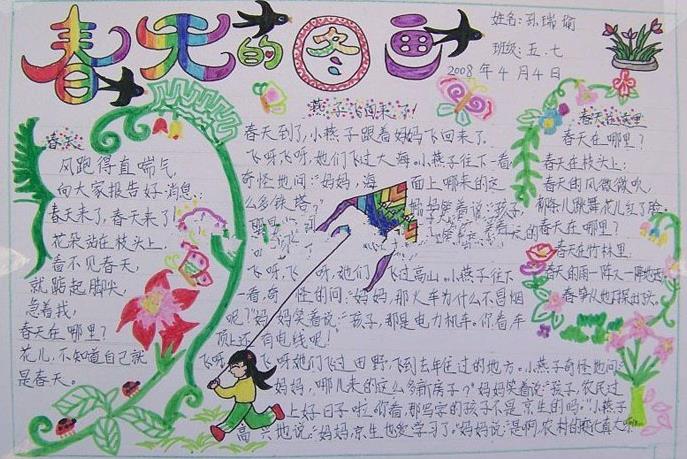 春天的图画
姓名：孙瑞瑜
班级：五.七
2008年4月4日
春天
风跑得直喘气，
向大家报告好消息：
春天来了，春天来了！
花朵站在枝头上，
看不见春天，
就踮起脚尖，
急着找，
春天在哪里？
花儿，不知道自己就
是春天。
燕子飞回来了！
春天到了，小燕子跟着妈妈飞回来了。
飞呀飞呀，她们飞过大海。小燕子往下一看，
奇怪地问：“妈妈，海面上哪来的这
么多铁塔？”
妈笑着说：“孩子，
飞呀，飞呀，她们飞过高山。小燕子往下
一看，奇怪的问：“妈妈，那火车为什么不冒烟
呢？”妈妈笑着说：“孩子，那是电力机车。你看车
顶上还有电线呢！
飞呀飞呀她们飞过田野，飞到去年住过的地方。小燕子奇怪地问：“
妈妈，哪儿来的这么多新房子？”妈妈笑着说：“孩子，农民过
上好日子啦。你看，那写字的孩子不是京生的吗。”小燕子
高兴地说：“妈妈，京生也爱学习了。”妈妈说：“是啊，农村的变化真大啊
春天在哪里
春天在哪里？
春天在枝头上：
春天的风微微吹，
柳条儿跳舞花儿红了脸。
春天在哪里？
春天在竹林里：
春天的雨一阵又一阵